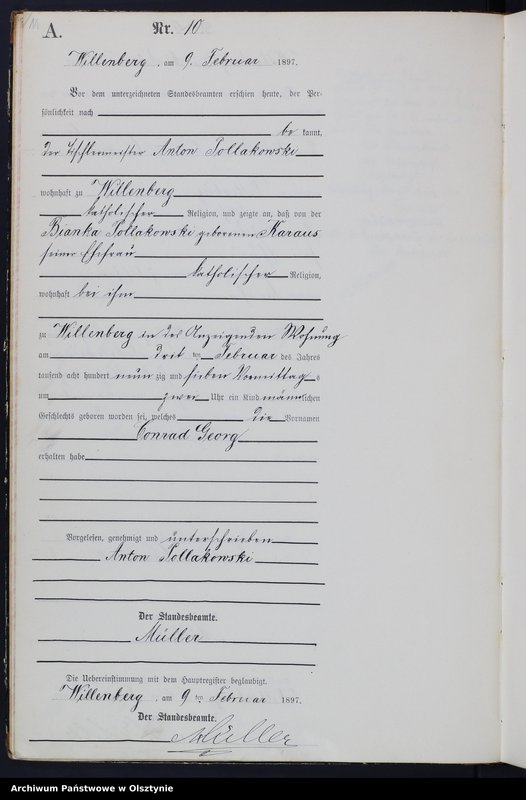 A.
Nr. 10
Willenberg, am 9. Februar 1897.
Vor dem unterzeichneten Standesbeamten erschien heute, der Per-
sönlichkeit nach
be kannt,
der Tischlermeister Anton Pollakowski
wohnhaft zu Willenberg
katholischer Religion, und zeigte an, daß von der
Bianka Pollakowski geborenen Karaus
seiner Ehefrau
katholischer Religion,
wohnhaft bei ihm
zu Willenberg in des Anzeigenden Wohnung
am drit ten Februar des Jahres
tausend acht hundert neun zig und sieben Vormittag s
um zwei Uhr ein Kind männlichen
Geschlechts geboren worden sei, welches die Vornamen
Conrad Georg
erhalten habe
Vorgelesen, genehmigt und unterschrieben
Anton Pollakowski
Der Standesbeamte.
Müller
Die Uebereinstimmung mit dem Hauptregister beglaubigt.
Willenberg, am 9 ten Februar 1897.
Der Standesbeamte.
Müller
Archiwum Państwowe w Olsztynie